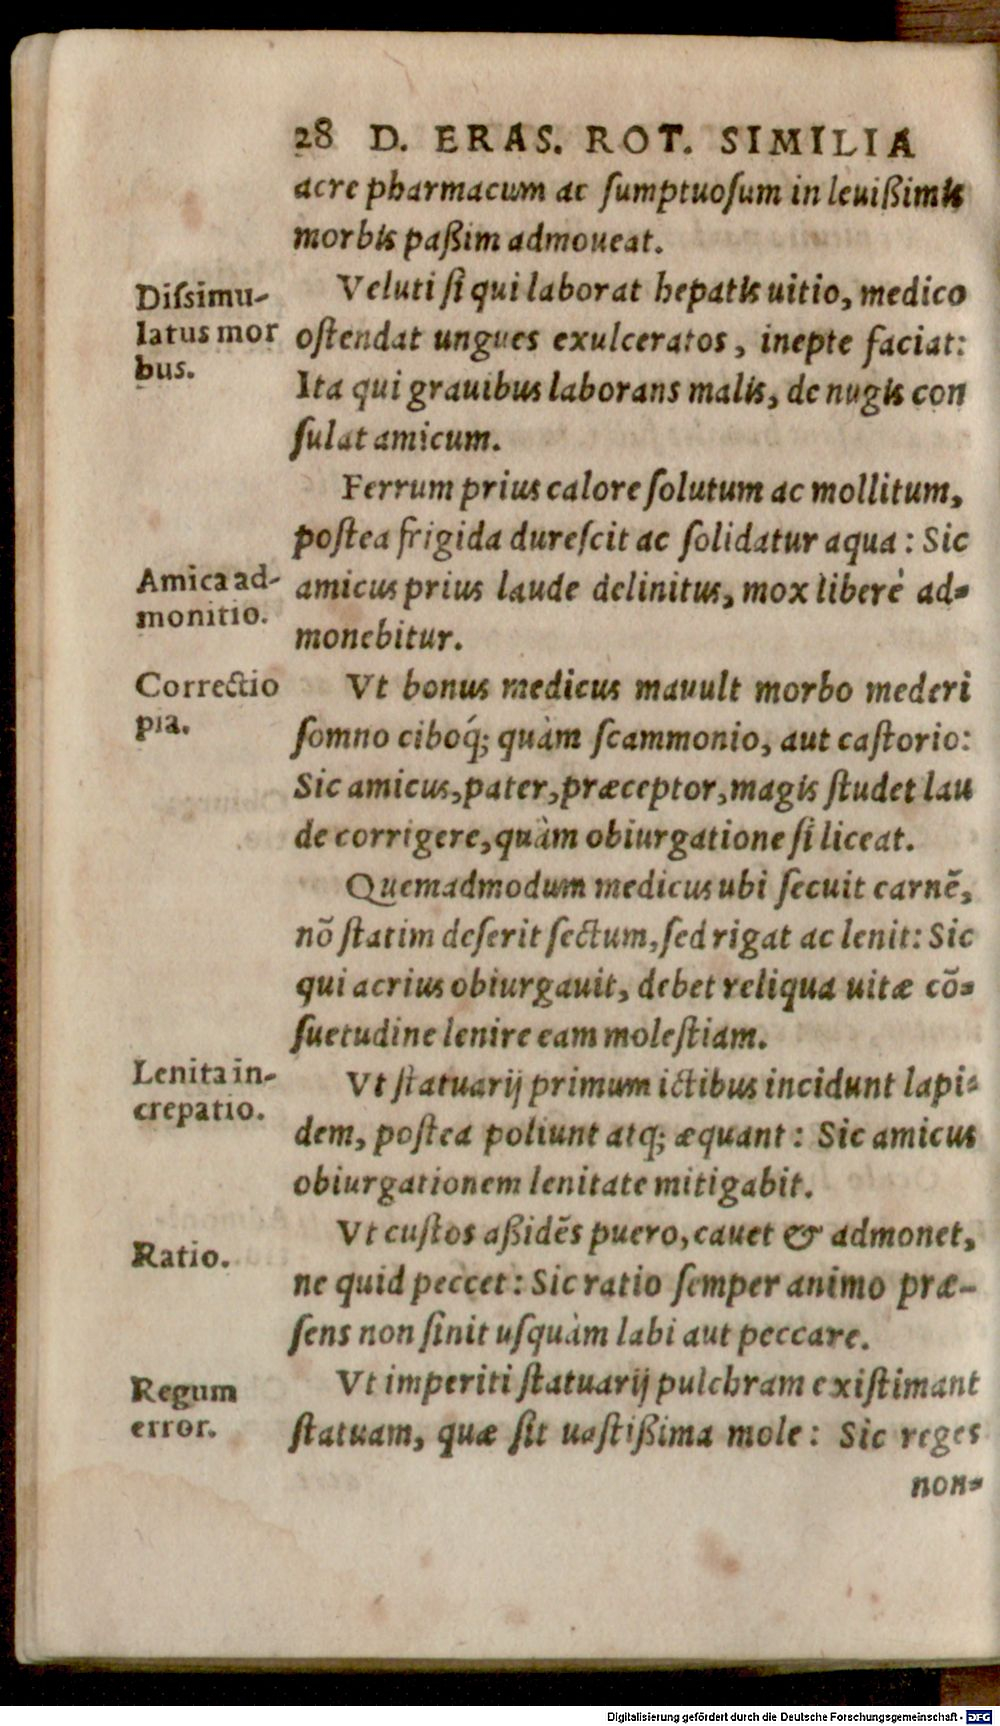 28 D. ERAS. ROT. SIMILIA
acre pharmacum ac ſumptuoſum in leuißimis
morbis paßim admoueat.
Diſsimu-
latus mor
bus.
Veluti ſi qui laborat hepatis uitio, medico
oſtendat ungues exulceratos, inepte faciat:
Ita qui grauibus laborans malis, de nugis con
ſulat amicum.
Ferrum prius calore ſolutum ac mollitum,
poſtea frigida dureſcit ac ſolidatur aqua: Sic
Amica ad-
monitio.
amicus prius laude delinitus, mox liberè ad-
monebitur.
Correctio
pia.
Vt bonus medicus mauult morbo mederi
ſomno ciboq́; quàm ſcammonio, aut caſtorio:
Sic amicus, pater, præceptor, magis ſtudet lau
de corrigere, quàm obiurgatione ſi liceat.
Quemadmodum medicus ubi ſecuit carnē,
nō ſtatim deſerit ſectum, ſed rigat ac lenit: Sic
qui acrius obiurgauit, debet reliqua uitæ cō-
ſuetudine lenire eam moleſtiam.
Lenita in-
crepatio.
Vt ſtatuarij primum ictibus incidunt lapi-
dem, poſtea poliunt atq; æquant: Sic amicus
obiurgationem lenitate mitigabit.
Ratio.
Vt cuſtos aßidēs puero, cauet & admonet,
ne quid peccet: Sic ratio ſemper animo præ-
ſens non ſinit uſquàm labi aut peccare.
Regum
error.
Vt imperiti ſtatuarij pulchram exiſtimant
ſtatuam, quæ ſit uaſtißima mole: Sic reges
non-
Digitalisierung gefördert durch die Deutsche Forschungsgemeinschaft - DFG